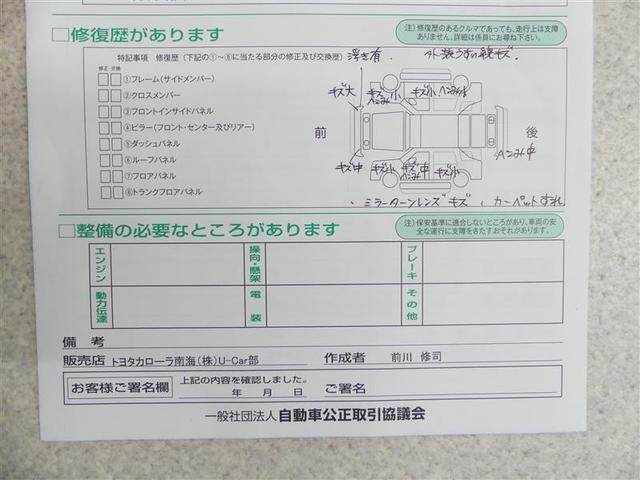 □修復歴があります
注)修復歴のあるクルマであっても、走行上は支障
ありません。詳細は係員にお尋ね下さい。
特記事項 修復歴(下記の①～⑧に当たる部分の修正及び交換歴)
浮き有. 外装うすい線キズ.
修正 交換
①フレーム(サイドメンバー)
②クロスメンバー
③フロントインサイドパネル
④ピラー(フロント・センター及びリアー)
⑤ダッシュパネル
⑥ルーフパネル
⑦フロアパネル
⑧トランクフロアパネル
キズ大 キズ小 キズ小
前 後
ヘこみ中
キズ中 キズ小 キズ中 キズ小
ミラーターンレンズキズ カーペットすれ
□整備の必要なところがあります
注)保安基準に適合しないところがあり、車両の安
全な運行に支障をきたすおそれがあります。
エンジン 操向・懸架 ブレーキ
動力伝達 電装 その他
備考
販売店 トヨタカローラ南海(株)U-Car部 作成者 前川 修司
お客様ご署名欄 上記の内容を確認しました。
年 月 日 ご署名
一般社団法人 自動車公正取引協議会